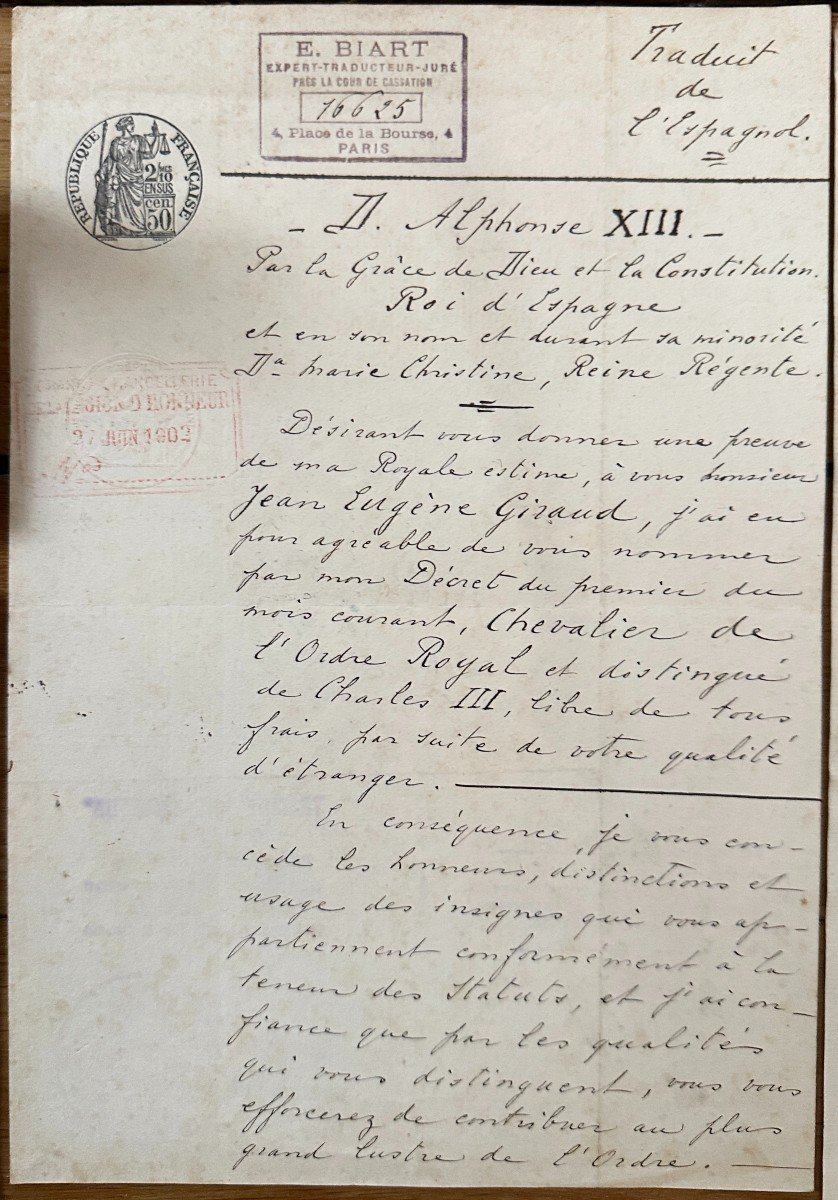 E. BIART
EXPERT-TRADUCTEUR-JURÉ
PRÈS LA COUR DE CASSATION
16625
4, Place de la Bourse, 4
PARIS
Traduit
de
l'Espagnol.
RÉPUBLIQUE FRANÇAISE
2/10
EN SUS
50
cen
- D. Alphonse XIII. -
Par la Grâce de Dieu et la Constitution.
Roi d'Espagne
et en son nom et durant sa minorité
Da Marie Christine, Reine Régente.
CHANCELLERIE
DE LA LEGION D'HONNEUR
27 JUIN 1902
Désirant vous donner une preuve
de ma Royale estime, à vous Monsieur
Jean Eugène Giraud, j'ai eu
pour agréable de vous nommer
par mon Décret du premier du
mois courant, Chevalier de
l'Ordre Royal et distingué
de Charles III, libre de tous
frais, par suite de votre qualité
d'étranger.
En conséquence, je vous con-
cède les honneurs, distinctions et
usage des insignes qui vous ap-
partiennent conformément à la
teneur des Statuts, et j'ai con-
fiance que par les qualités
qui vous distinguent, vous vous
efforcerez de contribuer au plus
grand lustre de l'Ordre.